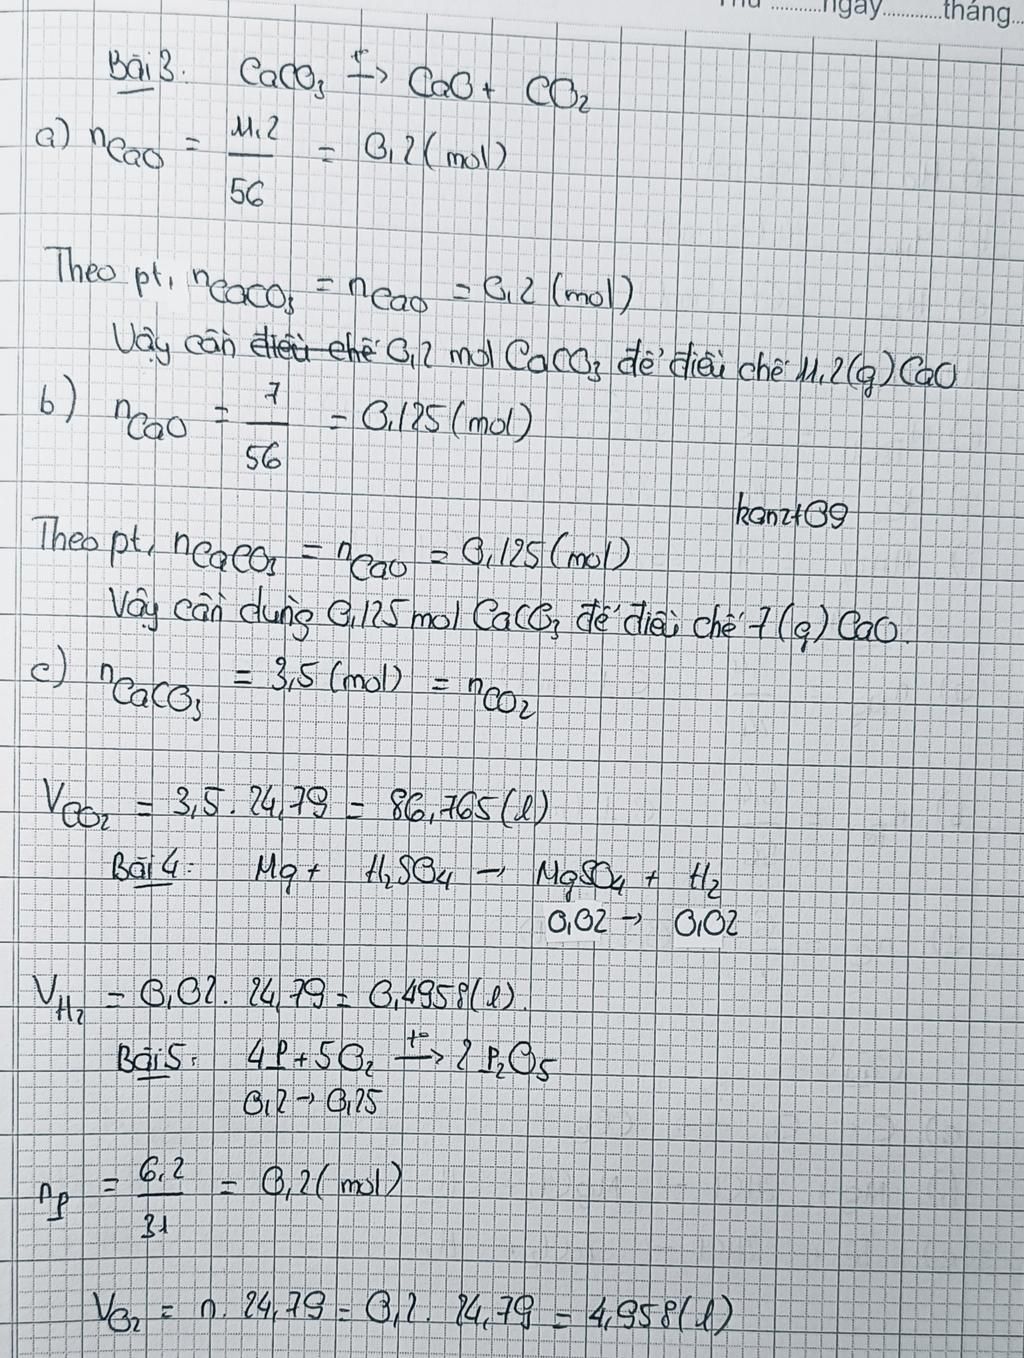 Thứ ..........ngày............tháng...
Bài 3: CaCO₃ t°→ CaO + CO₂
a) nCaO = 11,2/56 = 0,2 (mol)
Theo pt, nCaCO₃ = nCaO = 0,2 (mol)
Vậy cần điều chế 0,2 mol CaCO₃ để điều chế 11,2 (g) CaO
b) nCaO = 7/56 = 0,125 (mol)
kanzt09
Theo pt, nCaCO₃ = nCaO = 0,125 (mol)
Vậy cần dùng 0,125 mol CaCO₃ để điều chế 7 (g) CaO.
c) nCaCO₃ = 3,5 (mol) = nCO₂
VCO₂ = 3,5 . 24,79 = 86,765 (l)
Bài 4: Mg + H₂SO₄ → MgSO₄ + H₂
0,02 → 0,02
VH₂ = 0,02 . 24,79 = 0,4958 (l).
Bài 5: 4P + 5O₂ t°→ 2P₂O₅
0,2 → 0,25
nP = 6,2/31 = 0,2 (mol)
VO₂ = n . 24,79 = 0,2 . 24,79 = 4,958 (l)